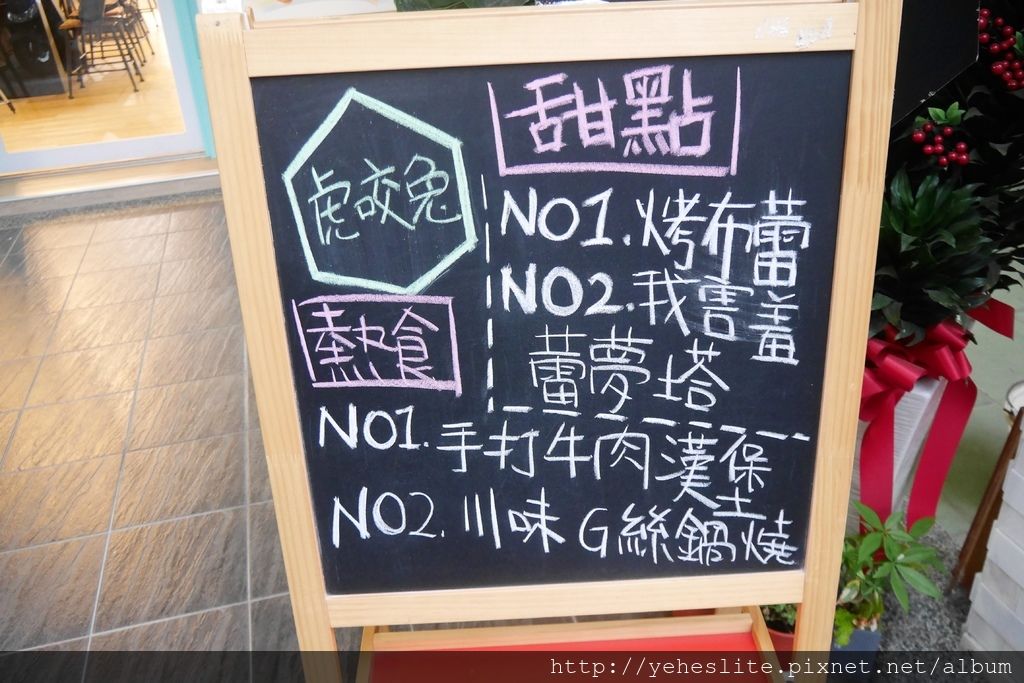 虎咬兔
甜點
NO1.烤布蕾
NO2.我害羞
蕾夢塔
熱食
NO1.手打牛肉漢堡
NO2.川味G絲鍋燒
http://yeheslite.pixnet.net/album